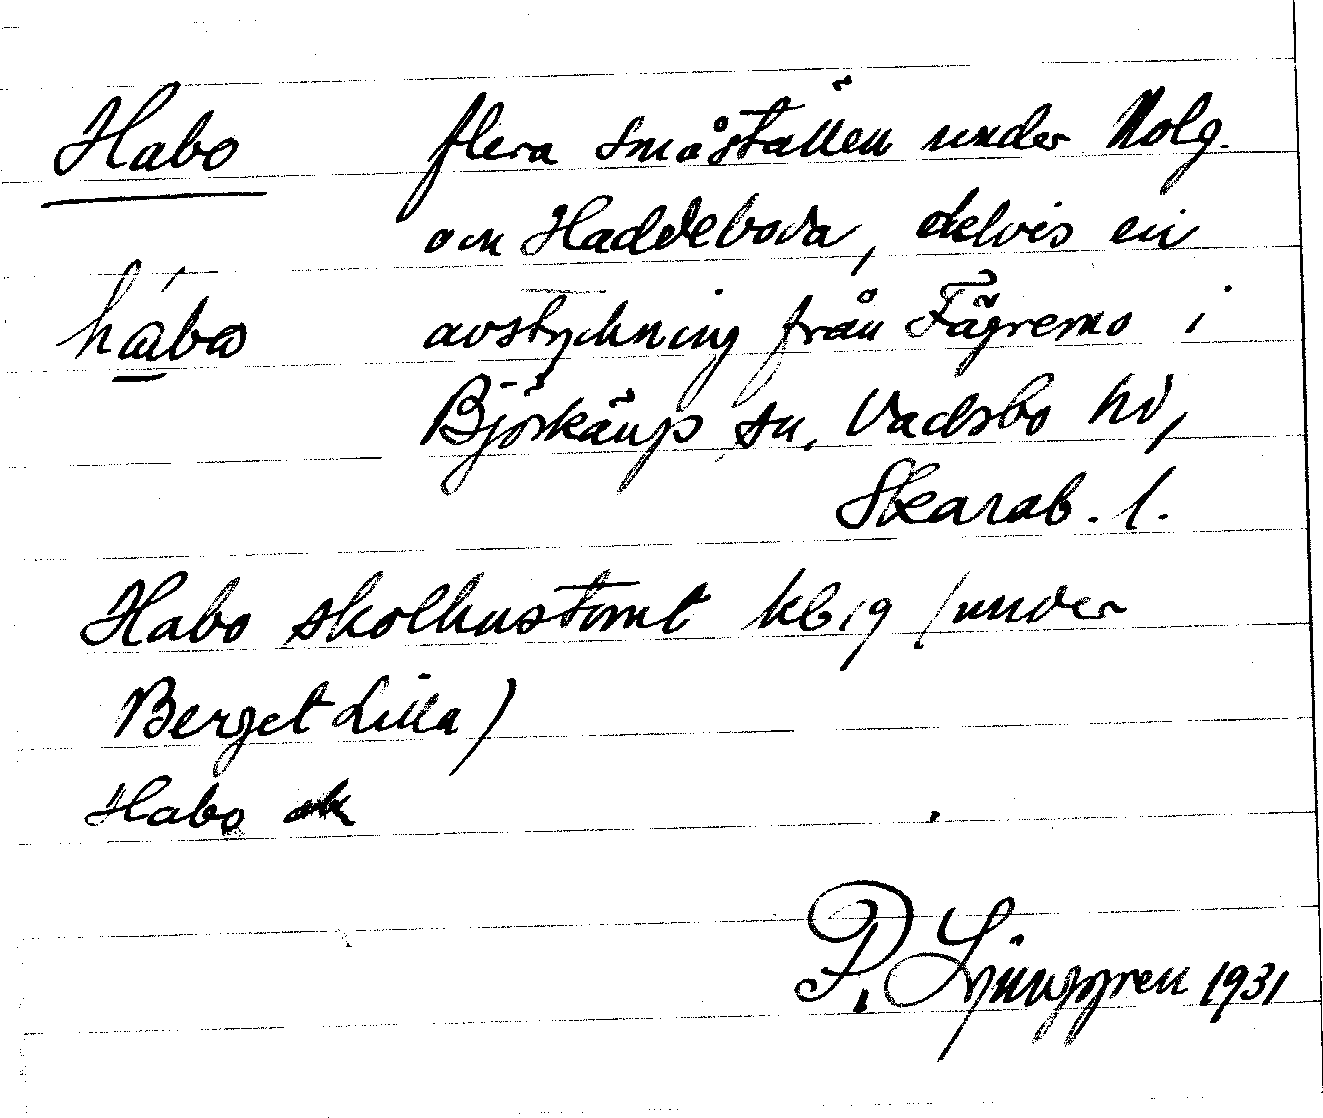 Habo flera småställen under Nolg.
och Haddeboda, delvis en
håbo avstyckning från Fägremo i
Björkängs sn, Vadsbo hd,
Skarab. l.
Habo skolhustomt kb 19 (under
Berget Lilla)
Habo ek
P. Ljunggren 1931